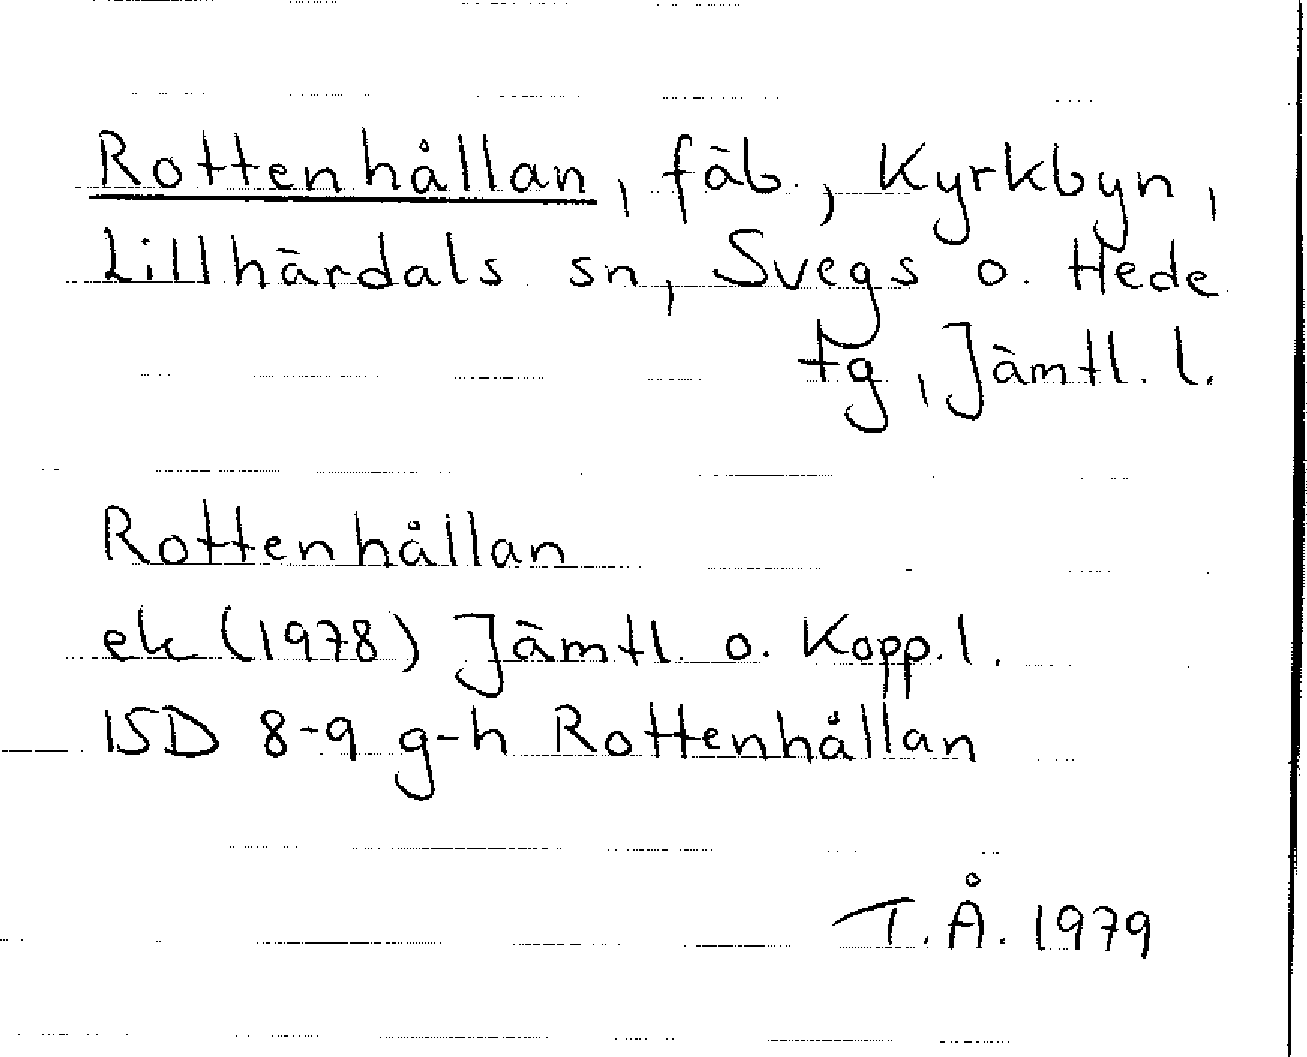 Rottenhållan, fäb., Kyrkbyn,
Lillhärdals sn, Svegs o. Hede
tg, Jämtl. l.
Rottenhållan
ek (1978) Jämtl. o. Kopp. l.
15D 8-9 g-h Rottenhållan
T.Å. 1979